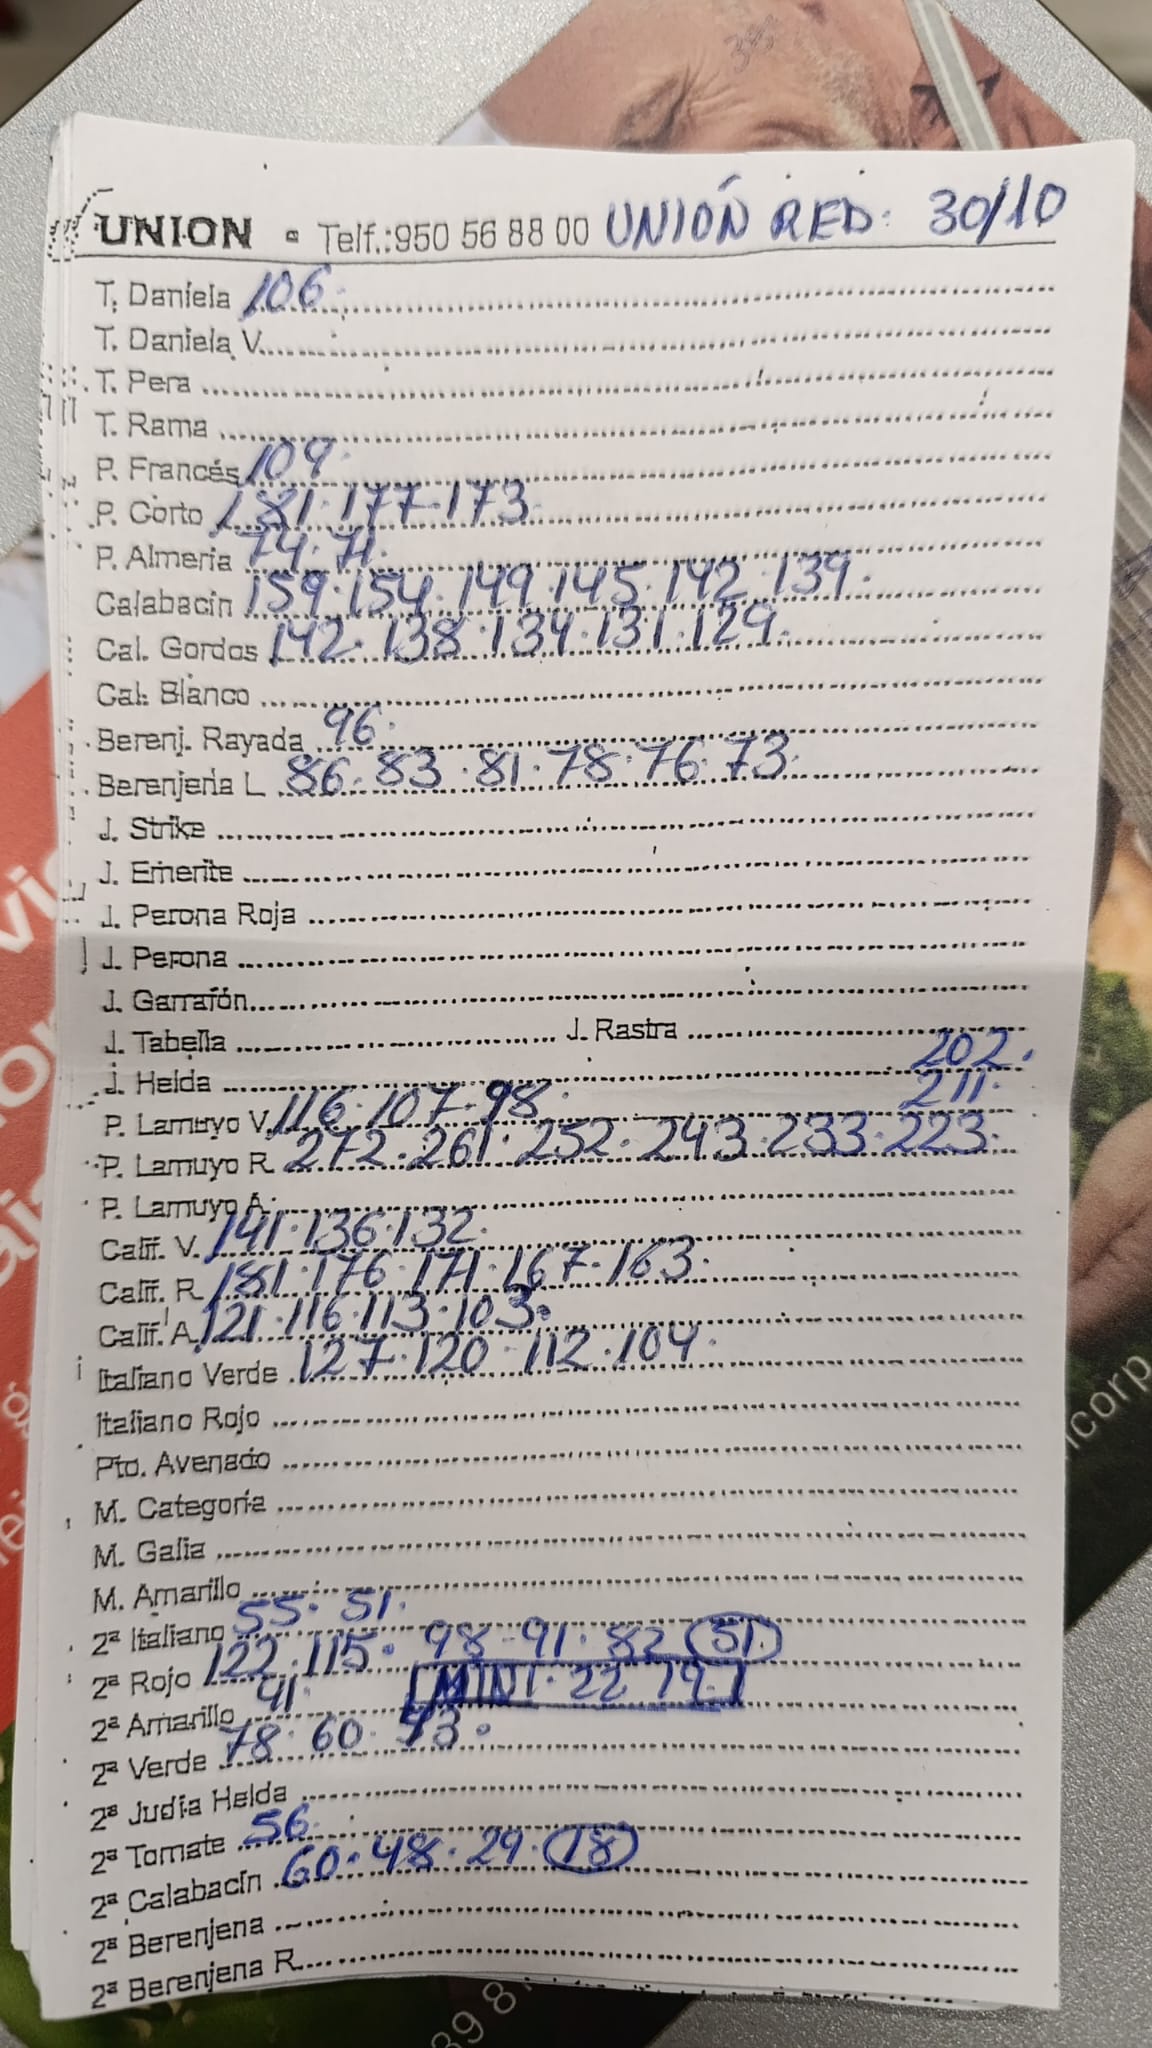 UNION - Telf.:950 56 88 00 UNIÓN RED: 30/10
T. Daniela 106.
T. Daniela V.
T. Pera
T. Rama
P. Francés 109.
P. Corto 181.177-173
P. Almeria 74.71.
Calabacín 159.154.149.145.142.139.
Cal. Gordos 142.138.134.131.129.
Cal. Blanco
Berenj. Rayada 96.
Berenjena L 86.83.81.78.76.73.
J. Strike
J. Emerite
J. Perona Roja
J. Perona
J. Garrafón
J. Tabella J. Rastra
202.
J. Helda
211.
P. Lamuyo V. 116.107.98.
P. Lamuyo R 272.261.252.243.233.223.
P. Lamuyo A.
Calif. V. 141.136.132.
Calif. R 181.176.171.167.163.
Calif. A. 121.116.113.103.
Italiano Verde 127.120.112.104.
Italiano Rojo
Pto. Avenado
M. Categoria
M. Galia
M. Amarillo
2ª Italiano 55.51.
2ª Rojo 122.115. 98-91.82 51.
2ª Amarillo 41. MINI.22 19.
2ª Verde 78.60.53.
2ª Judía Helda
2ª Tomate 56
2ª Calabacín 60.48.29.18
2ª Berenjena
2ª Berenjena R
icorp